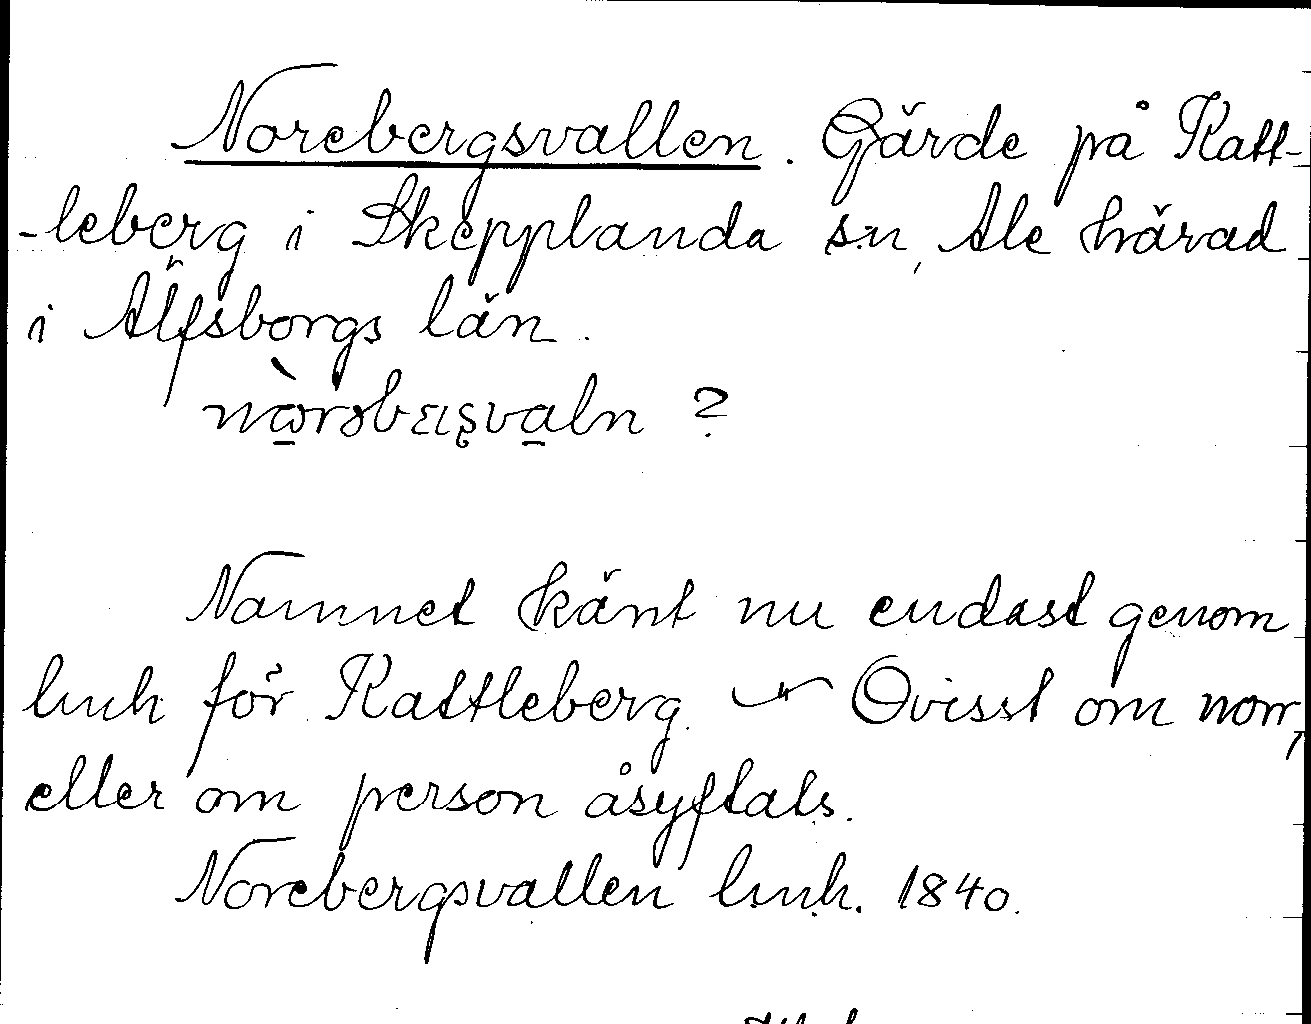 Norebergsvallen. Gärde på Katt-
-leberg i Skepplanda sn, Ale härad
i Älfsborgs län.
?
Namnet känt nu endast genom
lmh för Kattleberg. — Ovisst om norr,
eller om person åsyftats.
Norebergsvallen lmh. 1840.